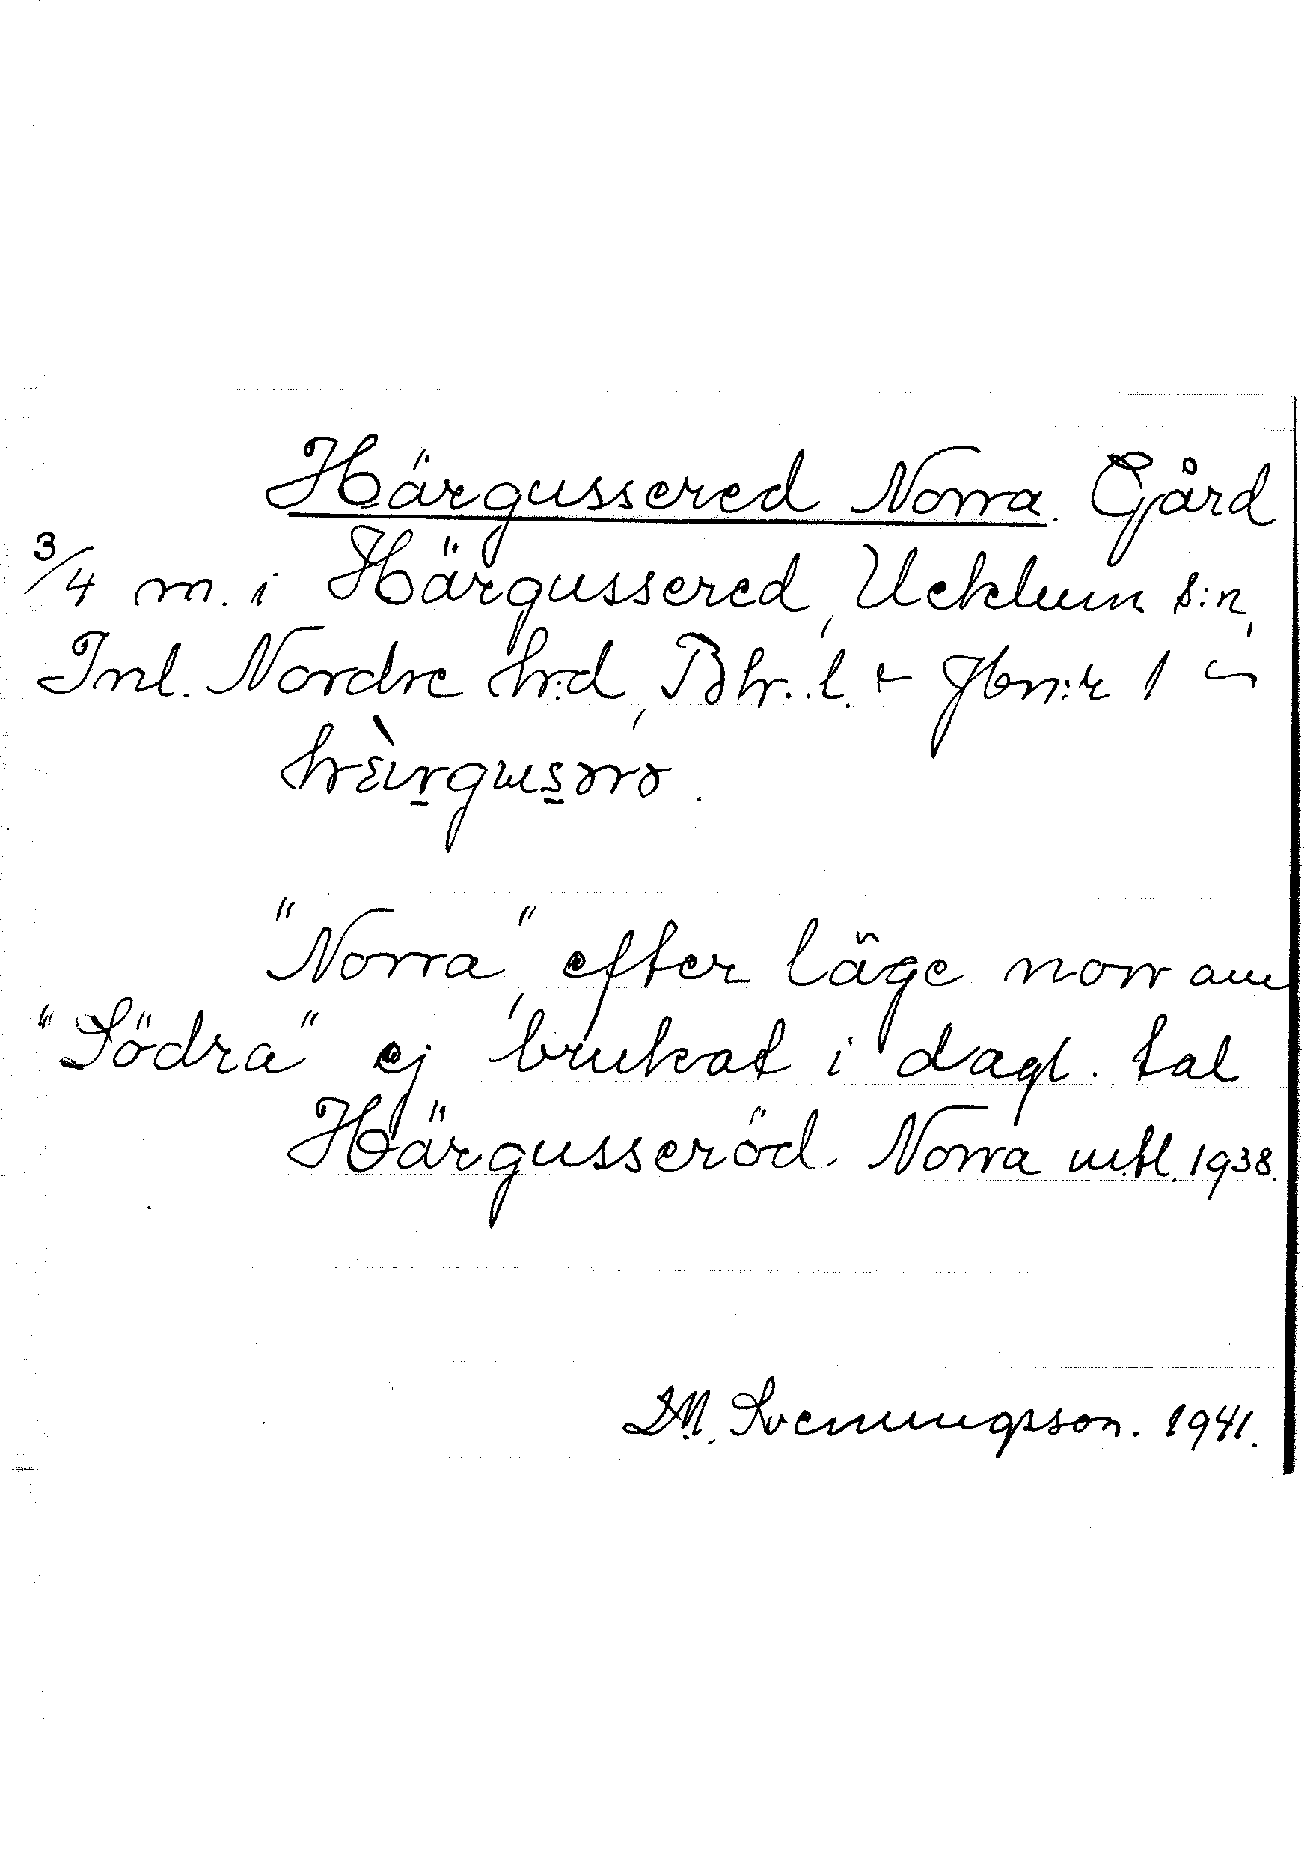 Härgussered Norra. Gård
3/4 m. i Härgussered, Ucklum s:n,
Inl. Nordre h:d, Bh. l. Jbn:r 1
"Norra", efter läge norr om
"Södra" ej brukat i dagl. tal
Härgusseröd Norra mtl. 1938.
D.N. Svenungsson. 1941.